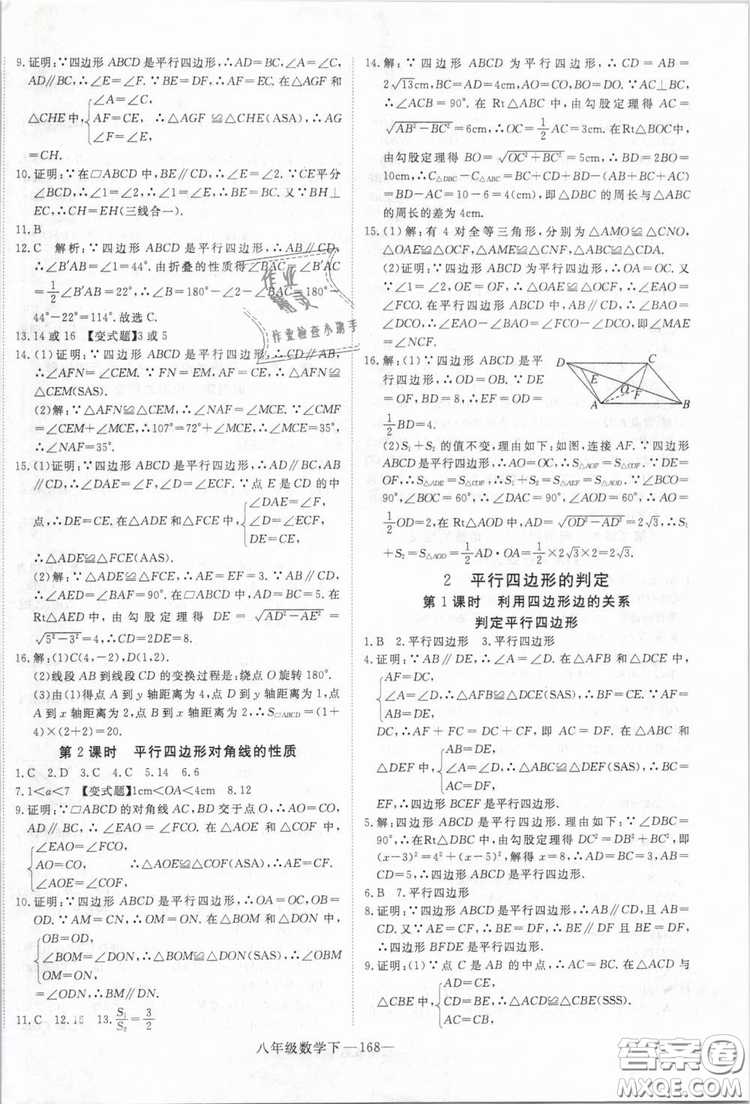 9.证明:∵四边形 ABCD 是平行四边形,∴∠A=∠C,
AD∥BC,∴∠E=∠F.∵BE=DF,∴AF=EC.在△AGF 和
∠A=∠C,
△CHE 中, AF=CE, ∴△AGF≌△CHE(ASA),∴AG
∠F=∠E,
=CH.
10.证明:∵在□ABCD 中,BE∥CD,∴∠E=∠2.∵CE平分
∠BCD,∴∠1=∠2,∴∠1=∠E,∴BE=BC.又∵BH⊥
EC,∴CH=EH(三线合一).
11.B
12.C 解析:∵四边形 ABCD 是平行四边形,∴AB∥CD,
∴∠B′AB=∠1=44°.由折叠的性质得∠BAC=∠B′AC=
1/2∠B′AB=22°,∴∠B=180°-∠2-∠BAC=180°-44°
-22°=114°.故选 C.
13.14或16 【变式题】3或5
14.(1)证明:∵四边形 ABCD 是平行四边形,∴CD∥AB,
∴∠AFN=∠CEM.∵FN=EM,AF=CE,∴△AFN≌
△CEM(SAS).
(2)解:∵△AFN≌△CEM,∴∠NAF=∠MCE.∵∠CMF
=∠CEM+∠MCE,∴107°=72°+∠MCE,∴∠MCE=35°,
∴∠NAF=35°.
15.(1)证明:∵四边形 ABCD 是平行四边形,∴AD∥BC,AB
∥CD,∴∠DAE=∠F,∠D=∠ECF.∵点 E 是 CD 的中
∠DAE=∠F,
点,∴DE=CE.在△ADE 和△FCE 中, ∠D=∠ECF,
DE=CE,
∴△ADE≌△FCE(AAS).
(2)解:∵△ADE≌△FCE,∴AE=EF=3.∵AB∥CD,
∴∠AED=∠BAF=90°.在□ABCD 中,AD=BC=5,在
Rt△ADE 中,由勾股定理得 DE=√(AD²-AE²)=
√(5²-3²)=4,∴CD=2DE=8.
16.解:(1)C(4,-2),D(1,2).
(2)线段 AB 到线段 CD 的变换过程是:绕点 O 旋转 180°.
(3)由(1)得点 A 到 y 轴距离为 4,点 D 到 y 轴距离为 1,
点 A 到 x 轴距离为 2,点 B 到 x 轴距离为 2,∴S□ABCD=(1+
4)×(2+2)=20.
第 2 课时 平行四边形对角线的性质
1.C 2.D 3.C 4.C 5.14 6.6
7.1<a<7 【变式题】1cm<OA<4cm 8.12
9.证明:∵□ABCD 的对角线 AC,BD 交于点 O,∴AO=CO,
AD∥BC,∴∠EAO=∠FCO.在△AOE 和△COF 中,
∠EAO=∠FCO,
AO=CO, ∴△AOE≌△COF(ASA),∴AE=CF.
∠AOE=∠COF,
10.证明:∵四边形 ABCD 是平行四边形,∴OA=OC,OB=
OD.∵AM=CN,∴OM=ON.在△BOM 和△DON 中,
OB=OD,
∠BOM=∠DON,∴△BOM≌△DON(SAS),∴∠OBM
OM=ON,
=∠ODN,∴BM∥DN.
11.C 12.16 13.S₁/S₂=3/2
14.解:∵四边形 ABCD 为平行四边形,∴CD=AB=
2√13cm,BC=AD=4cm,AO=CO,BO=DO.∵AC⊥BC,
∴∠ACB=90°.在 Rt△ABC 中,由勾股定理得 AC=
√(AB²-BC²)=6cm,∴OC=1/2AC=3cm.在Rt△BOC中,
由勾股定理得 BO=√(OC²+BC²)=5cm,∴BD=2BO=
10cm,∴C△DBC-C△ABC=BC+CD+BD-(AB+BC+AC)
=BD-AC=10-6=4(cm),即△DBC 的周长与△ABC
的周长的差为4cm.
15.(1)解:有 4 对全等三角形,分别为△AMO≌△CNO,
△OAE≌△OCF,△AME≌△CNF,△ABC≌△CDA.
(2)证明:∵四边形 ABCD 是平行四边形,∴OA=OC.又
∵∠1=∠2,OE=OF,∴△OAE≌△OCF,∴∠EAO=
∠FCO.∵AB∥CD,∴∠BAO=∠DCO,即∠MAE
=∠NCF.
16.解:(1)∵四边形 ABCD 是平行
四边形,∴OD=OB.∵DE=
OF,BD=8,∴EF=OD=
1/2BD=4.
D C E O F A B
(2)S₁+S₂ 的值不变,理由如下:如图,连接 AF.∵四边形
ABCD 是平行四边形,∴AO=OC,∴S△AOF=S△COF.∵DE=
OF,∴S△ADE=S△AOF,∴S₁+S₂=S△AOD.∵∠BCO=
90°,∠BOC=60°,∴∠DAC=90°,∠ADO=30°,∴OA=
1/2OD=2,在 Rt△AOD 中,AD=√(OD²-AD²)=2√3,∴S₁
+S₂=S△AOD=1/2AD·OA=1/2×2√3×2=2√3.
2 平行四边形的判定
第 1 课时 利用四边形边的关系
判定平行四边形
1.B 2.平行四边形 3.平行四边形
4.证明:∵AB∥DE,∴∠A=∠D.在△AFB 和△DCE 中,
AF=DC,
∠A=∠D,∴△AFB≌△DCE(SAS),∴BF=CE.∵AF=
AB=DE,
DC,∴AF+FC=DC+CF,即 AC=DF.在△ABC 和
AB=DE,
△DEF 中, ∠A=∠D,∴△ABC≌△DEF(SAS),∴BC=
AC=DF,
EF,∴四边形 BCEF 是平行四边形.
5.解:四边形 ABCD 是平行四边形.理由如下:∵∠DBC=
90°,∴在Rt△DBC 中,由勾股定理得 DC²=DB²+BC²,即
(x-3)²=4²+(x-5)²,解得 x=8,∴AD=BC=3,AB=
CD=5,∴四边形 ABCD 是平行四边形.
6.B 7.平行四边形
8.证明:∵四边形 ABCD 是平行四边形,∴AD∥BC,且 AD
=BC.∵AE=CF,∴DE=BF.∵DE∥BF,且 DE=BF,
∴四边形 BFDE 是平行四边形.
9.证明:(1)∵点 C 是 AB 的中点,∴AC=BC.在△ACD 与
AD=CE,
△CBE 中, CD=BE,∴△ACD≌△CBE(SSS).
AC=CB,
八年级数学下—168—
作业精灵
作业检查小助手
答案圈
MXQE.COM